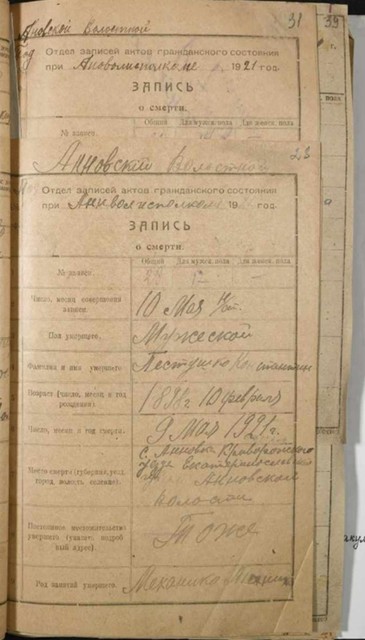 31 39
Ановской Волостной
Отдел записей актов гражданского состояния
при Анволисполкоме 1921 год.
ЗАПИСЬ
о смерти.
Общий Для мужск. пола Для женск. пола
№ записи.
Анновский Волостной 23
Отдел записей актов гражданского состояния
при Анволисполкоме 19 год.
ЗАПИСЬ
о смерти.
Общий Для мужск. пола Для женск. пола
№ записи.
Число, месяц совершения записи. 10 Мая
Пол умершего. Мужеской
Фамилия и имя умершего Пестушко Константин
Возраст (число, месяц и год рождения). 1898 г. 10 февраля
Число, месяц и год смерти. 9 Мая 1921 г.
Место смерти (губерния, уезд, город, волость, селение). с. Анновка Криворожского
уезда Екатеринославской
Анновской
волости
Постоянное местожительство умершего (указать подробный адрес). Тоже
Род занятий умершего. Механик